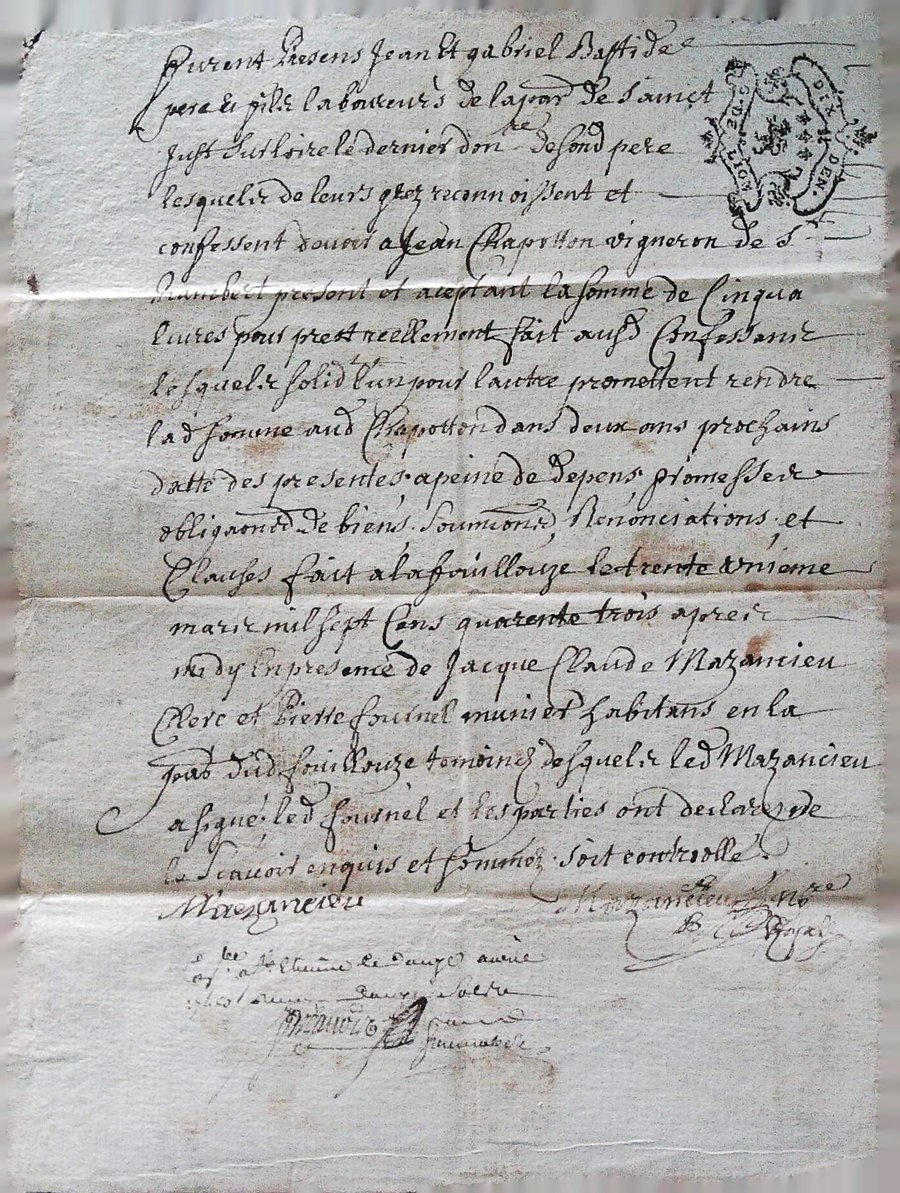 furent Presens Jean Et gabriel Bastide
pere et fils laboureurs de la par de Sainct
Just Sur loire le dernier don^re de sond pere
lesquels de leurs grez reconnoissent et
confessent devoir a Jean Chapotton vigneron de S
Rambert present et aceptant la somme de Cinqua
livres pour prest reellement fait ausd Confessans
lesquels solid l'un pour l'autre promettent rendre
lad somme aud Chapotton dans deux ans prochains
datte des presentes a peine de depens promesses
obligaons de biens Soumions Renonciations et
Clauses fait a la fouillouze le trente unieme
mars mil sept Cens quarente trois apres
midy En presence de Jacque Claude Mazancieu
Clerc et pierre fournel munier habitans en la
par dud fouillouze temoins desquels led Mazancieu
a signé led fournel et les parties ont declaré ne
le Scavoir enquis et sommez soit controollé
Mazancieu
Mazancieu No^re
Royal
a St Etienne le douze avril
douze solz
G DE LION
DIX DEN.